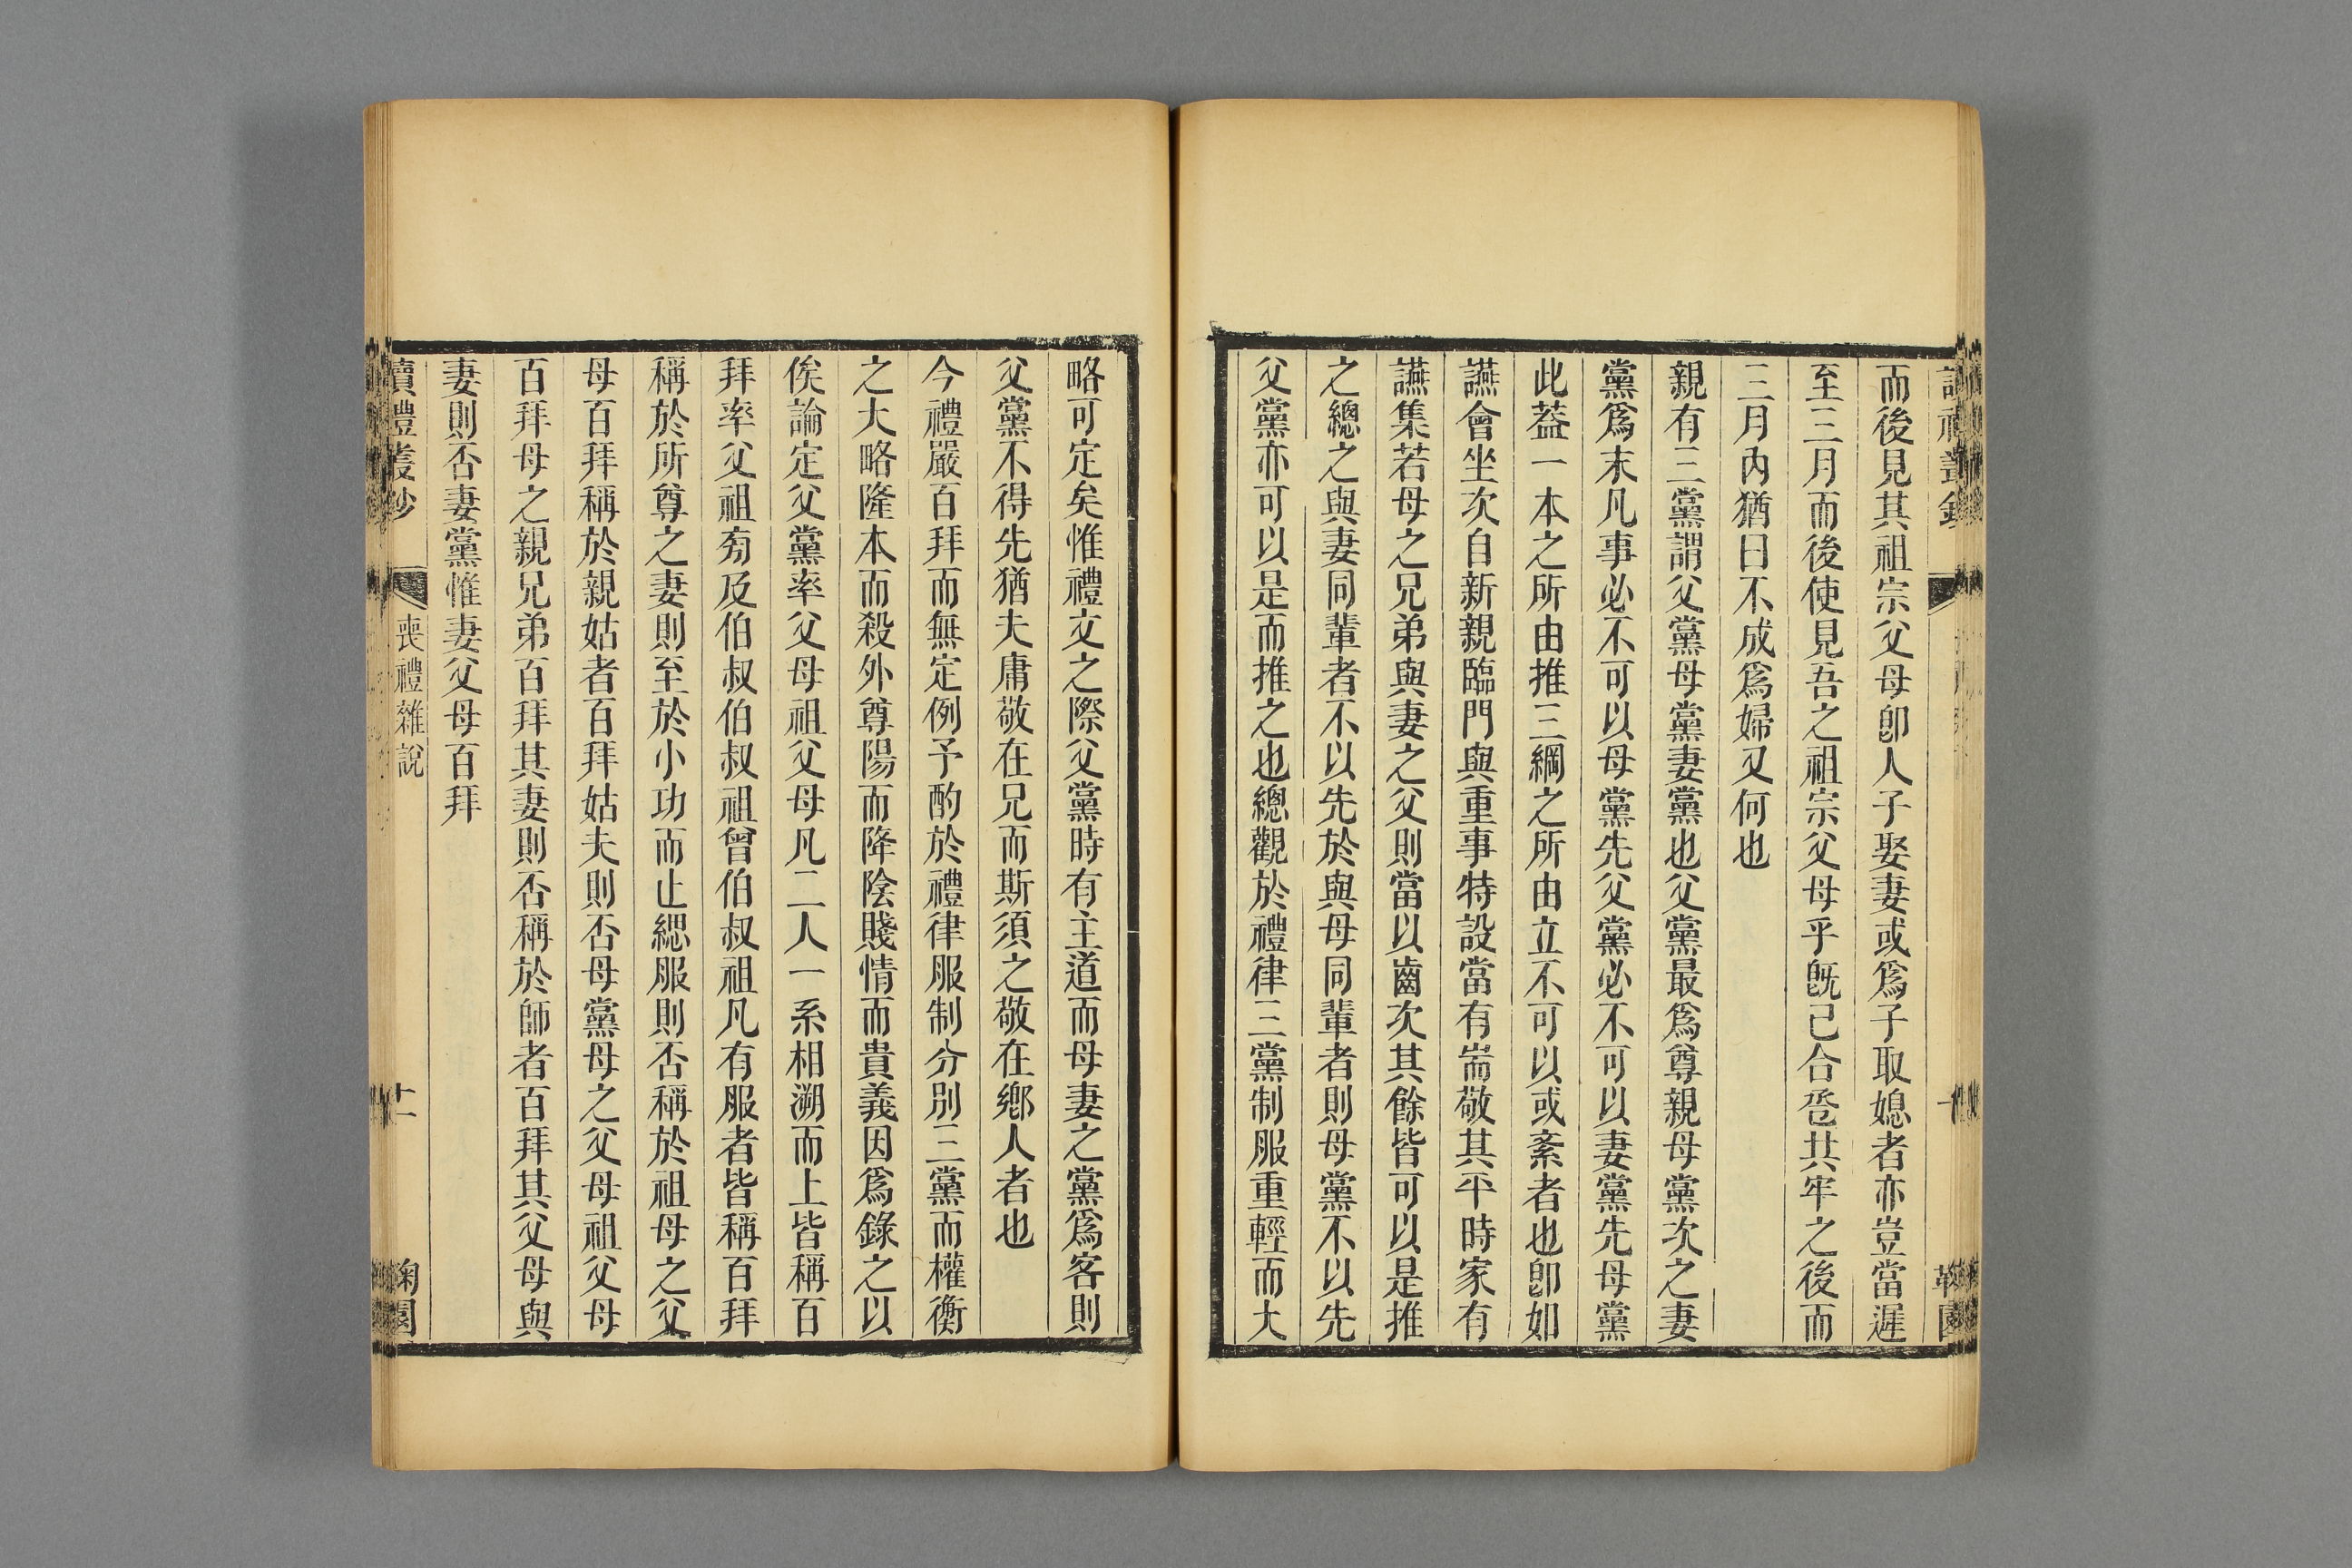 而後見其祖宗父母卽人子娶妻或爲子取媳者亦豈當遲
至三月而後使見吾之祖宗父母乎旣已合卺共牢之後而
三月內猶曰不成爲婦又何也
親有三黨謂父黨母黨妻黨也父黨最爲尊親母黨次之妻
黨爲末凡事必不可以母黨先父黨必不可以妻黨先母黨
此葢一本之所由推三綱之所由立不可以或紊者也卽如
讌會坐次自新親臨門與重事特設當有耑敬其平時家有
讌集若母之兄弟與妻之父則當以齒次其餘皆可以是推
之總之與妻同輩者不以先於與母同輩者則母黨不以先
父黨亦可以是而推之也總觀於禮律三黨制服重輕而大
略可定矣惟禮文之際父黨時有主道而母妻之黨爲客則
父黨不得先猶夫庸敬在兄而斯須之敬在鄕人者也
今禮嚴百拜而無定例予酌於禮律服制分別三黨而權衡
之大略隆本而殺外尊陽而降陰賤情而貴義因爲錄之以
俟論定父黨率父母祖父母凡二人一系相溯而上皆稱百
拜率父祖㫄及伯叔伯叔祖曾伯叔祖凡有服者皆稱百拜
稱於所尊之妻則至於小功而止緦服則否稱於祖母之父
母百拜稱於親姑者百拜姑夫則否母黨母之父母祖父母
百拜母之親兄弟百拜其妻則否稱於師者百拜其父母與
妻則否妻黨惟妻父母百拜
讀禮叢鈔
喪禮雜說
十一
鞠園